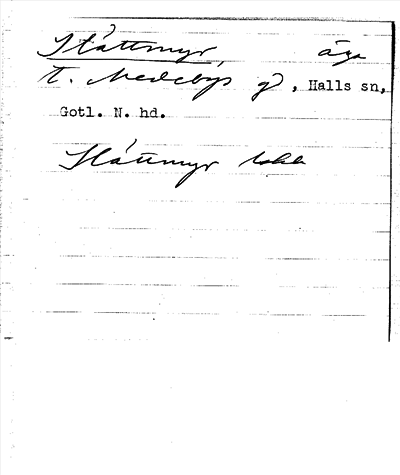 Slåttmyr äga
t. Medebys gd, Halls sn,
Gotl. N. hd.
Slåttmyr